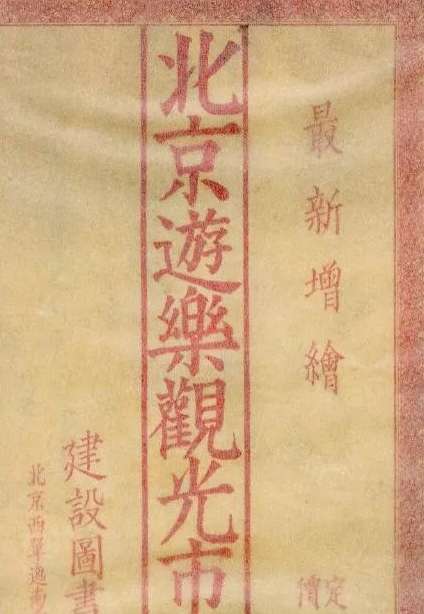 最新增繪
定價
北京遊樂觀光市
建設圖書
北京西單